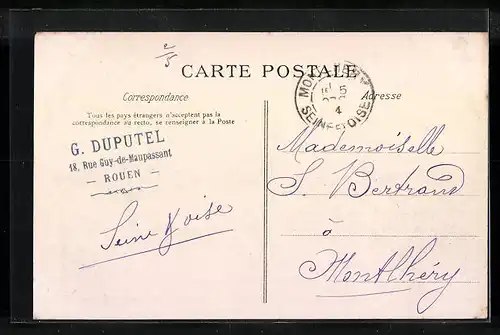 2/5
CARTE POSTALE
Correspondance
Adresse
Tous les pays étrangers n'acceptent pas la
correspondance au recto, se renseigner à la Poste
G. DUPUTEL
18, Rue Guy-de-Maupassant
— ROUEN —
5
4
SEINE-ET-OISE
Mademoiselle
S. Bertrand
à
Montlhéry
Seine & Oise